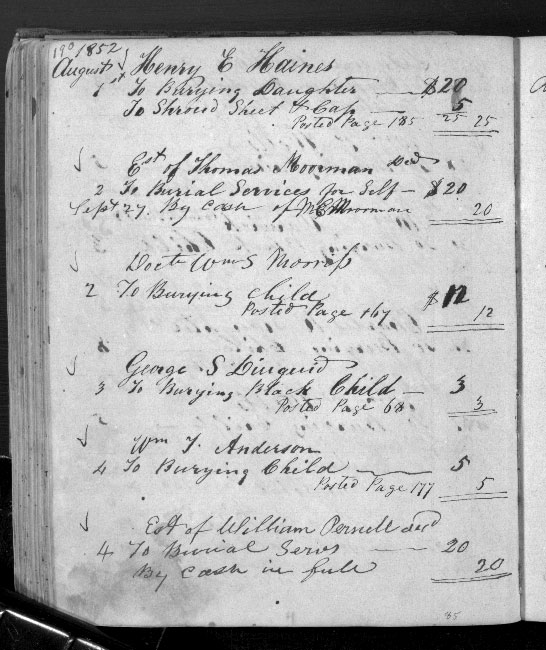 190 1852
August Henry E Haines
1st To Burying Daughter $20
To Shroud Sheet & Cap 5
Posted Page 185 25 25
Est of Thomas Moorman Decd
2 To Burial Services for Self $20
Sept 27 By Cash of Moorman 20
Doctr Wm S Morriss
2 To Burying Child $12
Posted Page 167 12
George S
3 To Burying Black Child 3
Posted Page 68 3
Wm T. Anderson
4 To Burying Child 5
Posted Page 177 5
Est of William Pernell decd
4 To Burial Servs 20
By Cash in full 20